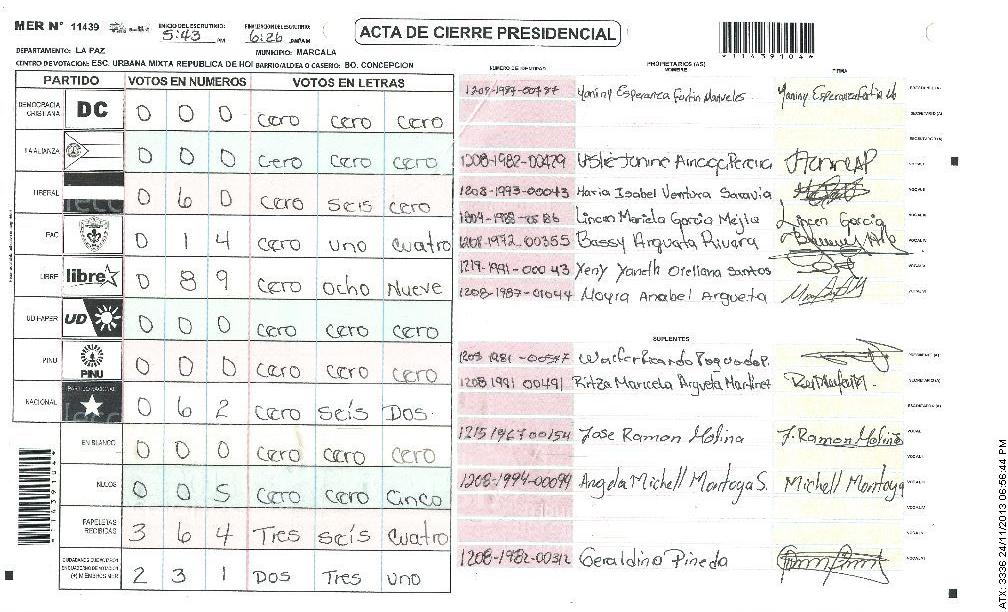 MER N° 11439 INICIO DEL ESCRUTINIO: 5:43 PM FINALIZACION DEL ESCRUTINIO: 6:26 PM/AM ACTA DE CIERRE PRESIDENCIAL
DEPARTAMENTO: LA PAZ MUNICIPIO: MARCALA
CENTRO DE VOTACION: ESC. URBANA MIXTA REPUBLICA DE HOI BARRIO/ALDEA O CASERIO: BO. CONCEPCION
PARTIDO VOTOS EN NUMEROS VOTOS EN LETRAS
DEMOCRACIA CRISTIANA DC 0 0 0 cero cero cero
LA ALIANZA 0 0 0 cero cero cero
LIBERAL 0 6 0 cero seis cero
PAC 0 1 4 cero uno cuatro
LIBRE libre 0 8 9 cero ocho Nueve
UD/FAPER UD 0 0 0 cero cero cero
PINU PINU 0 0 0 cero cero cero
NACIONAL PARTIDO NACIONAL 0 6 2 cero seis Dos
EN BLANCO 0 0 0 cero cero cero
NULOS 0 0 5 cero cero cinco
PAPELETAS RECIBIDAS 3 6 4 Tres seis cuatro
(+) MIEMBROS MER 2 3 1 Dos Tres uno
*11439104*
NUMERO DE IDENTIDAD PROPIETARIOS (AS) NOMBRE FIRMA
Yaniny Esperanza Fortin
SECRETARIO (A)
1208-1982-00429
1208-1993-00043 Maria Isabel Ventura Saravia
Lincen Mariela Garcia Mejia Lincen Garcia
1208-1972-00355 Bassy Argueta Rivera
1219-1991-00043 Yeny Yaneth Orellana Santos
1208-1987-01044 Moyra Anabel Argueta
SUPLENTES
Walter Ricardo
1208 1991 00491 Ritza Maricela Argueta Martinez
1215 1967 00154 Jose Ramon Molina J. Ramon Molina
1208-1994-00099 Angela Michell Montoya S. Michell Montoya
1208-1982-00312 Geraldina Pineda
*11439104*
ATX: 3336 24/11/2013 06:56:44 PM